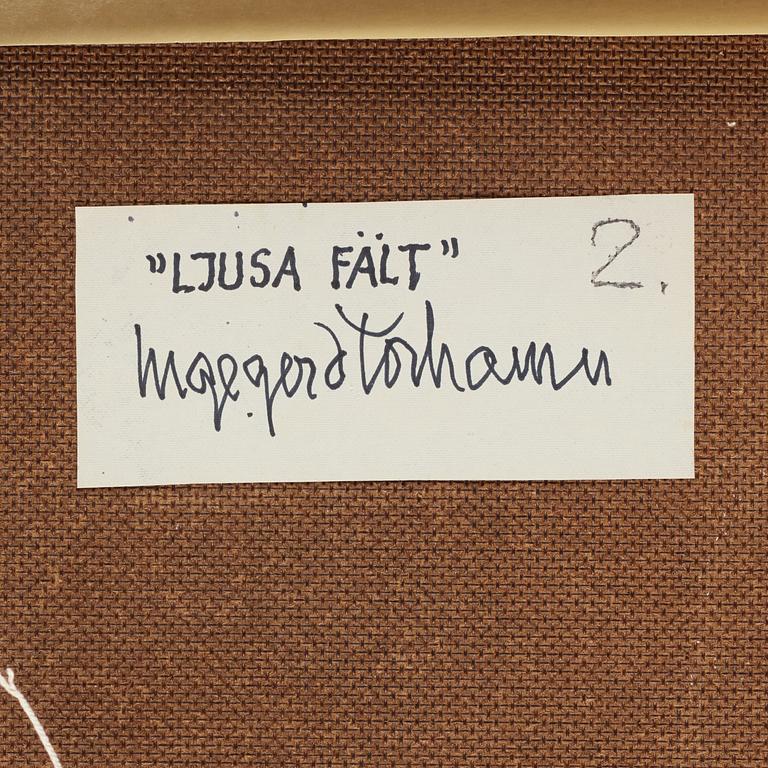 "LJUSA FÄLT" 2.
Ingegerd Torhamn